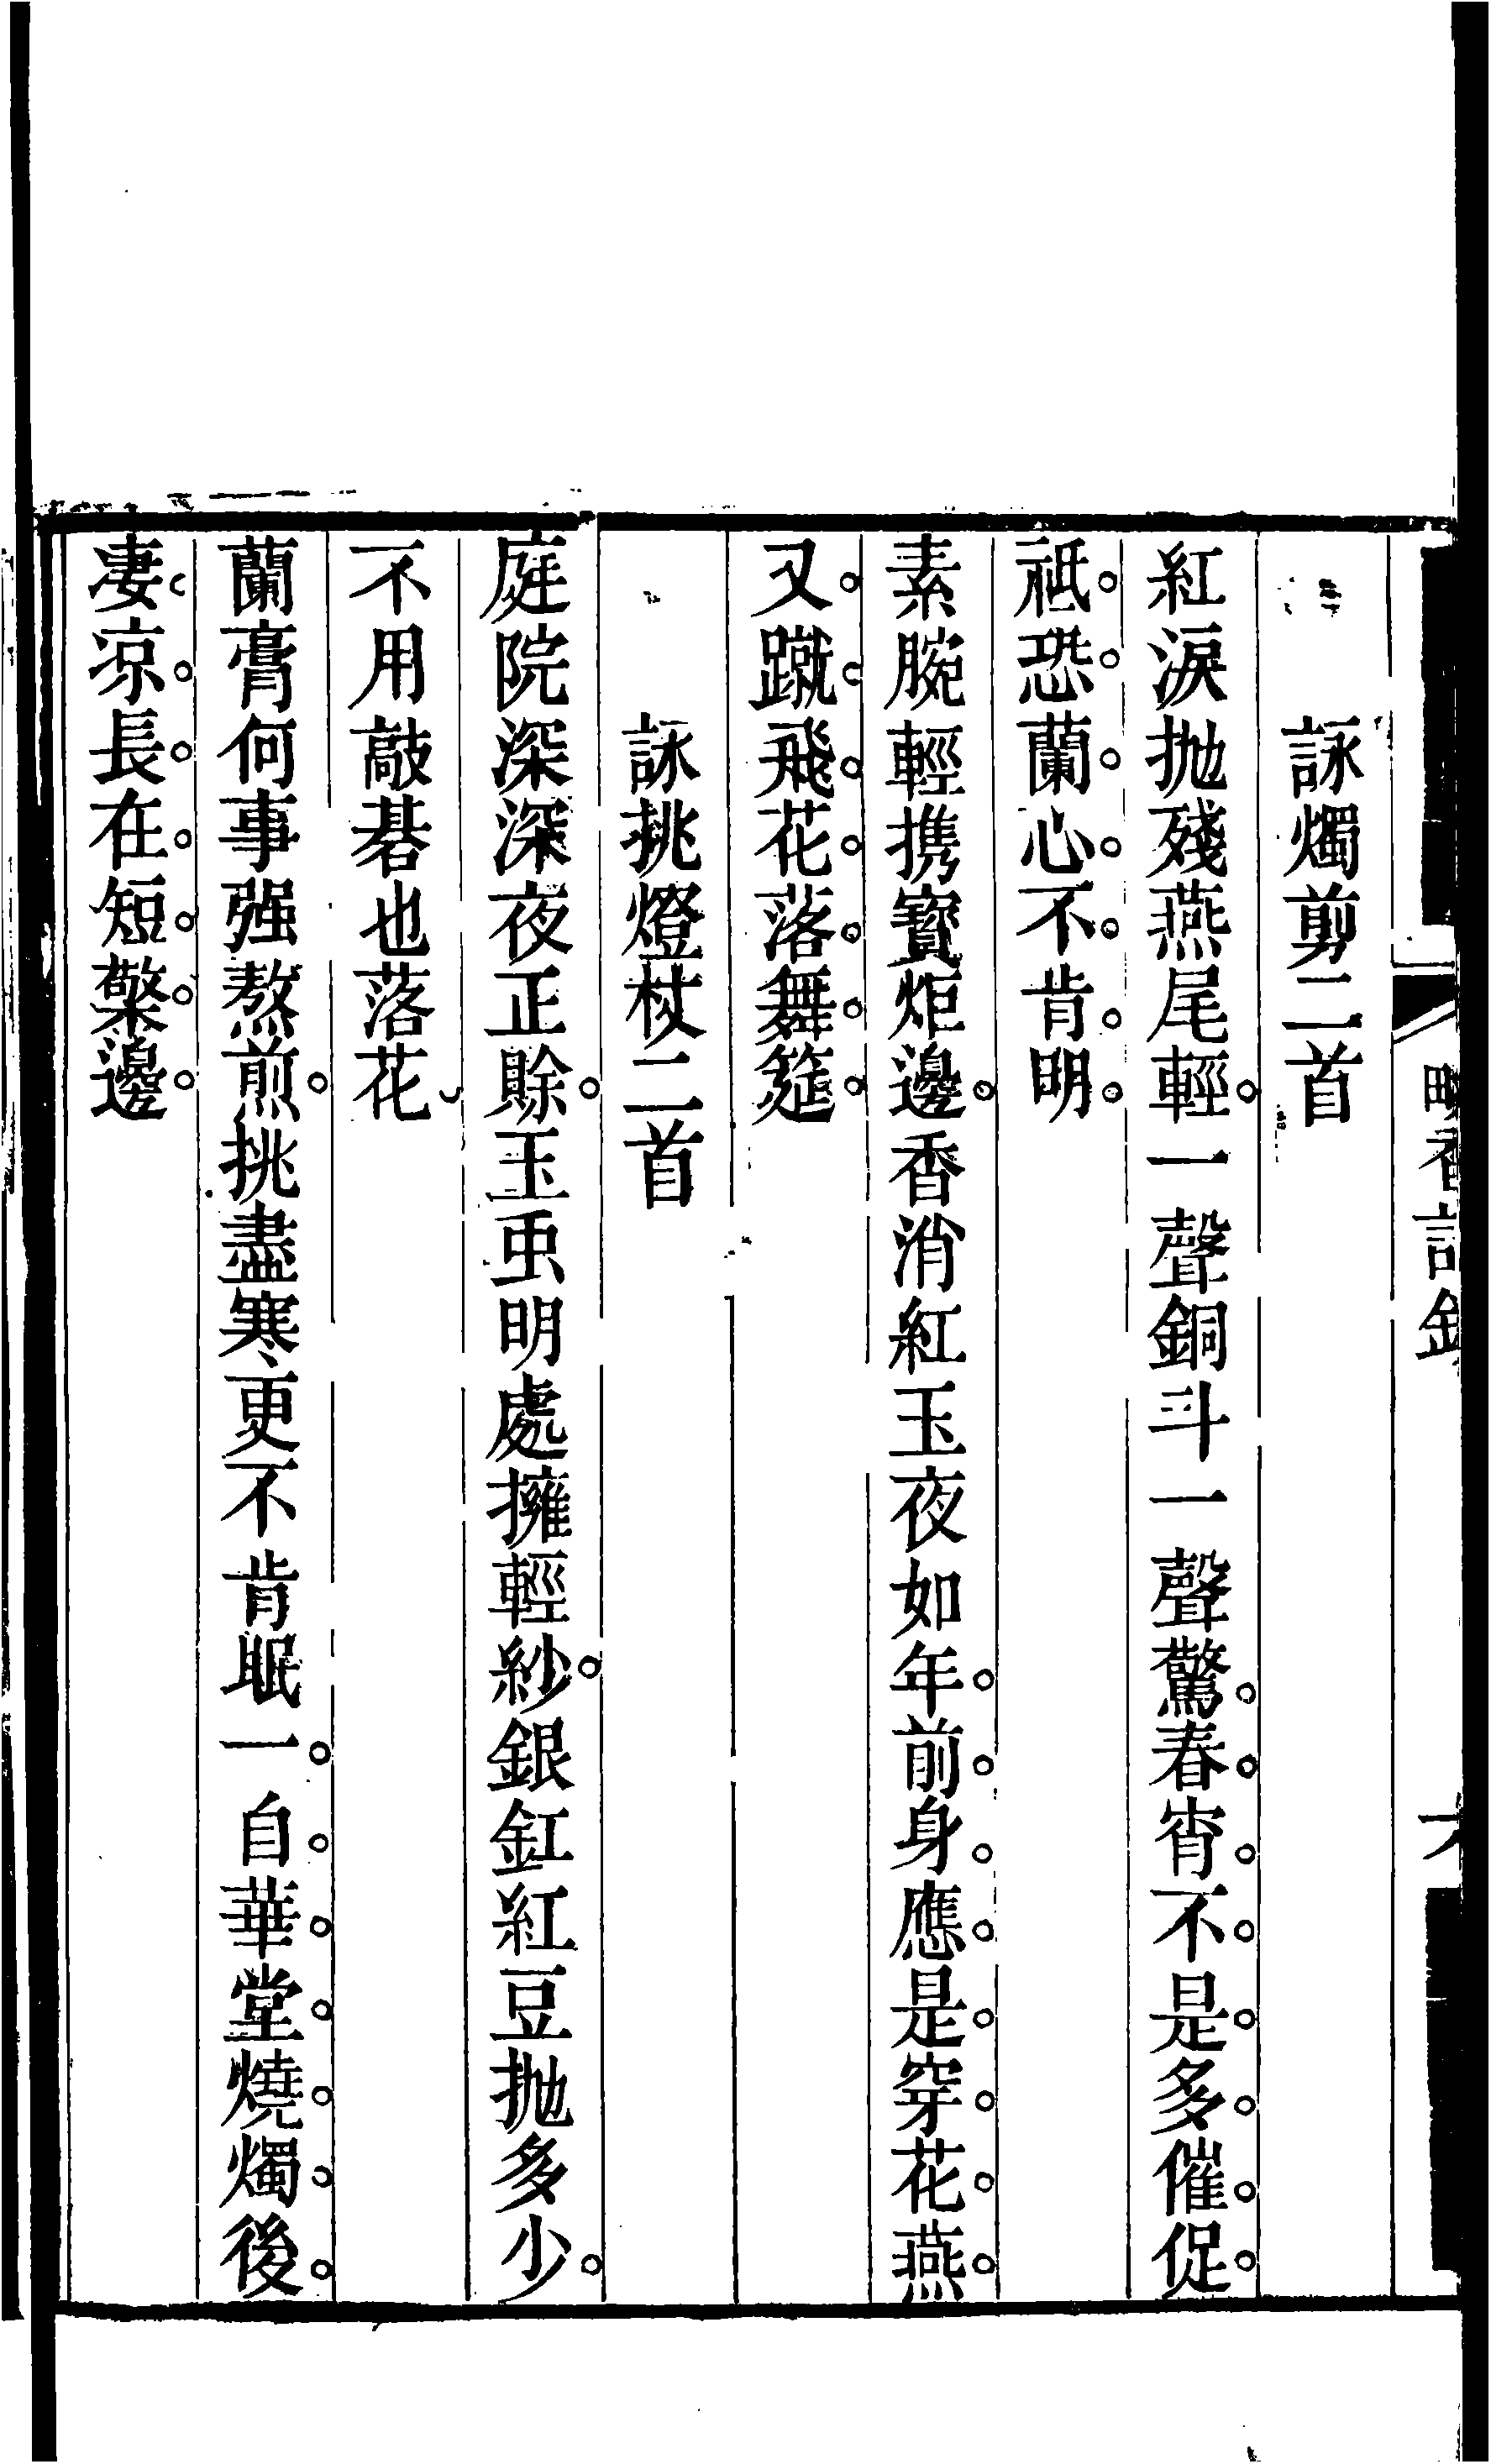 詠燭剪二首
紅淚抛殘燕尾輕一聲銅斗一聲驚春宵不是多催促
祗恐蘭心不肯明
素腕輕携寳炬邊香消紅玉夜如年前身應是穿花燕
又蹴飛花落舞筵
詠挑燈杖二首
庭院深深夜正賖玉虫明處擁輕紗銀釭紅豆抛多少
不用敲碁也落花
蘭膏何事强熬煎挑盡寒更不肯眠一自華堂燒燭後
凄凉長在短檠邊